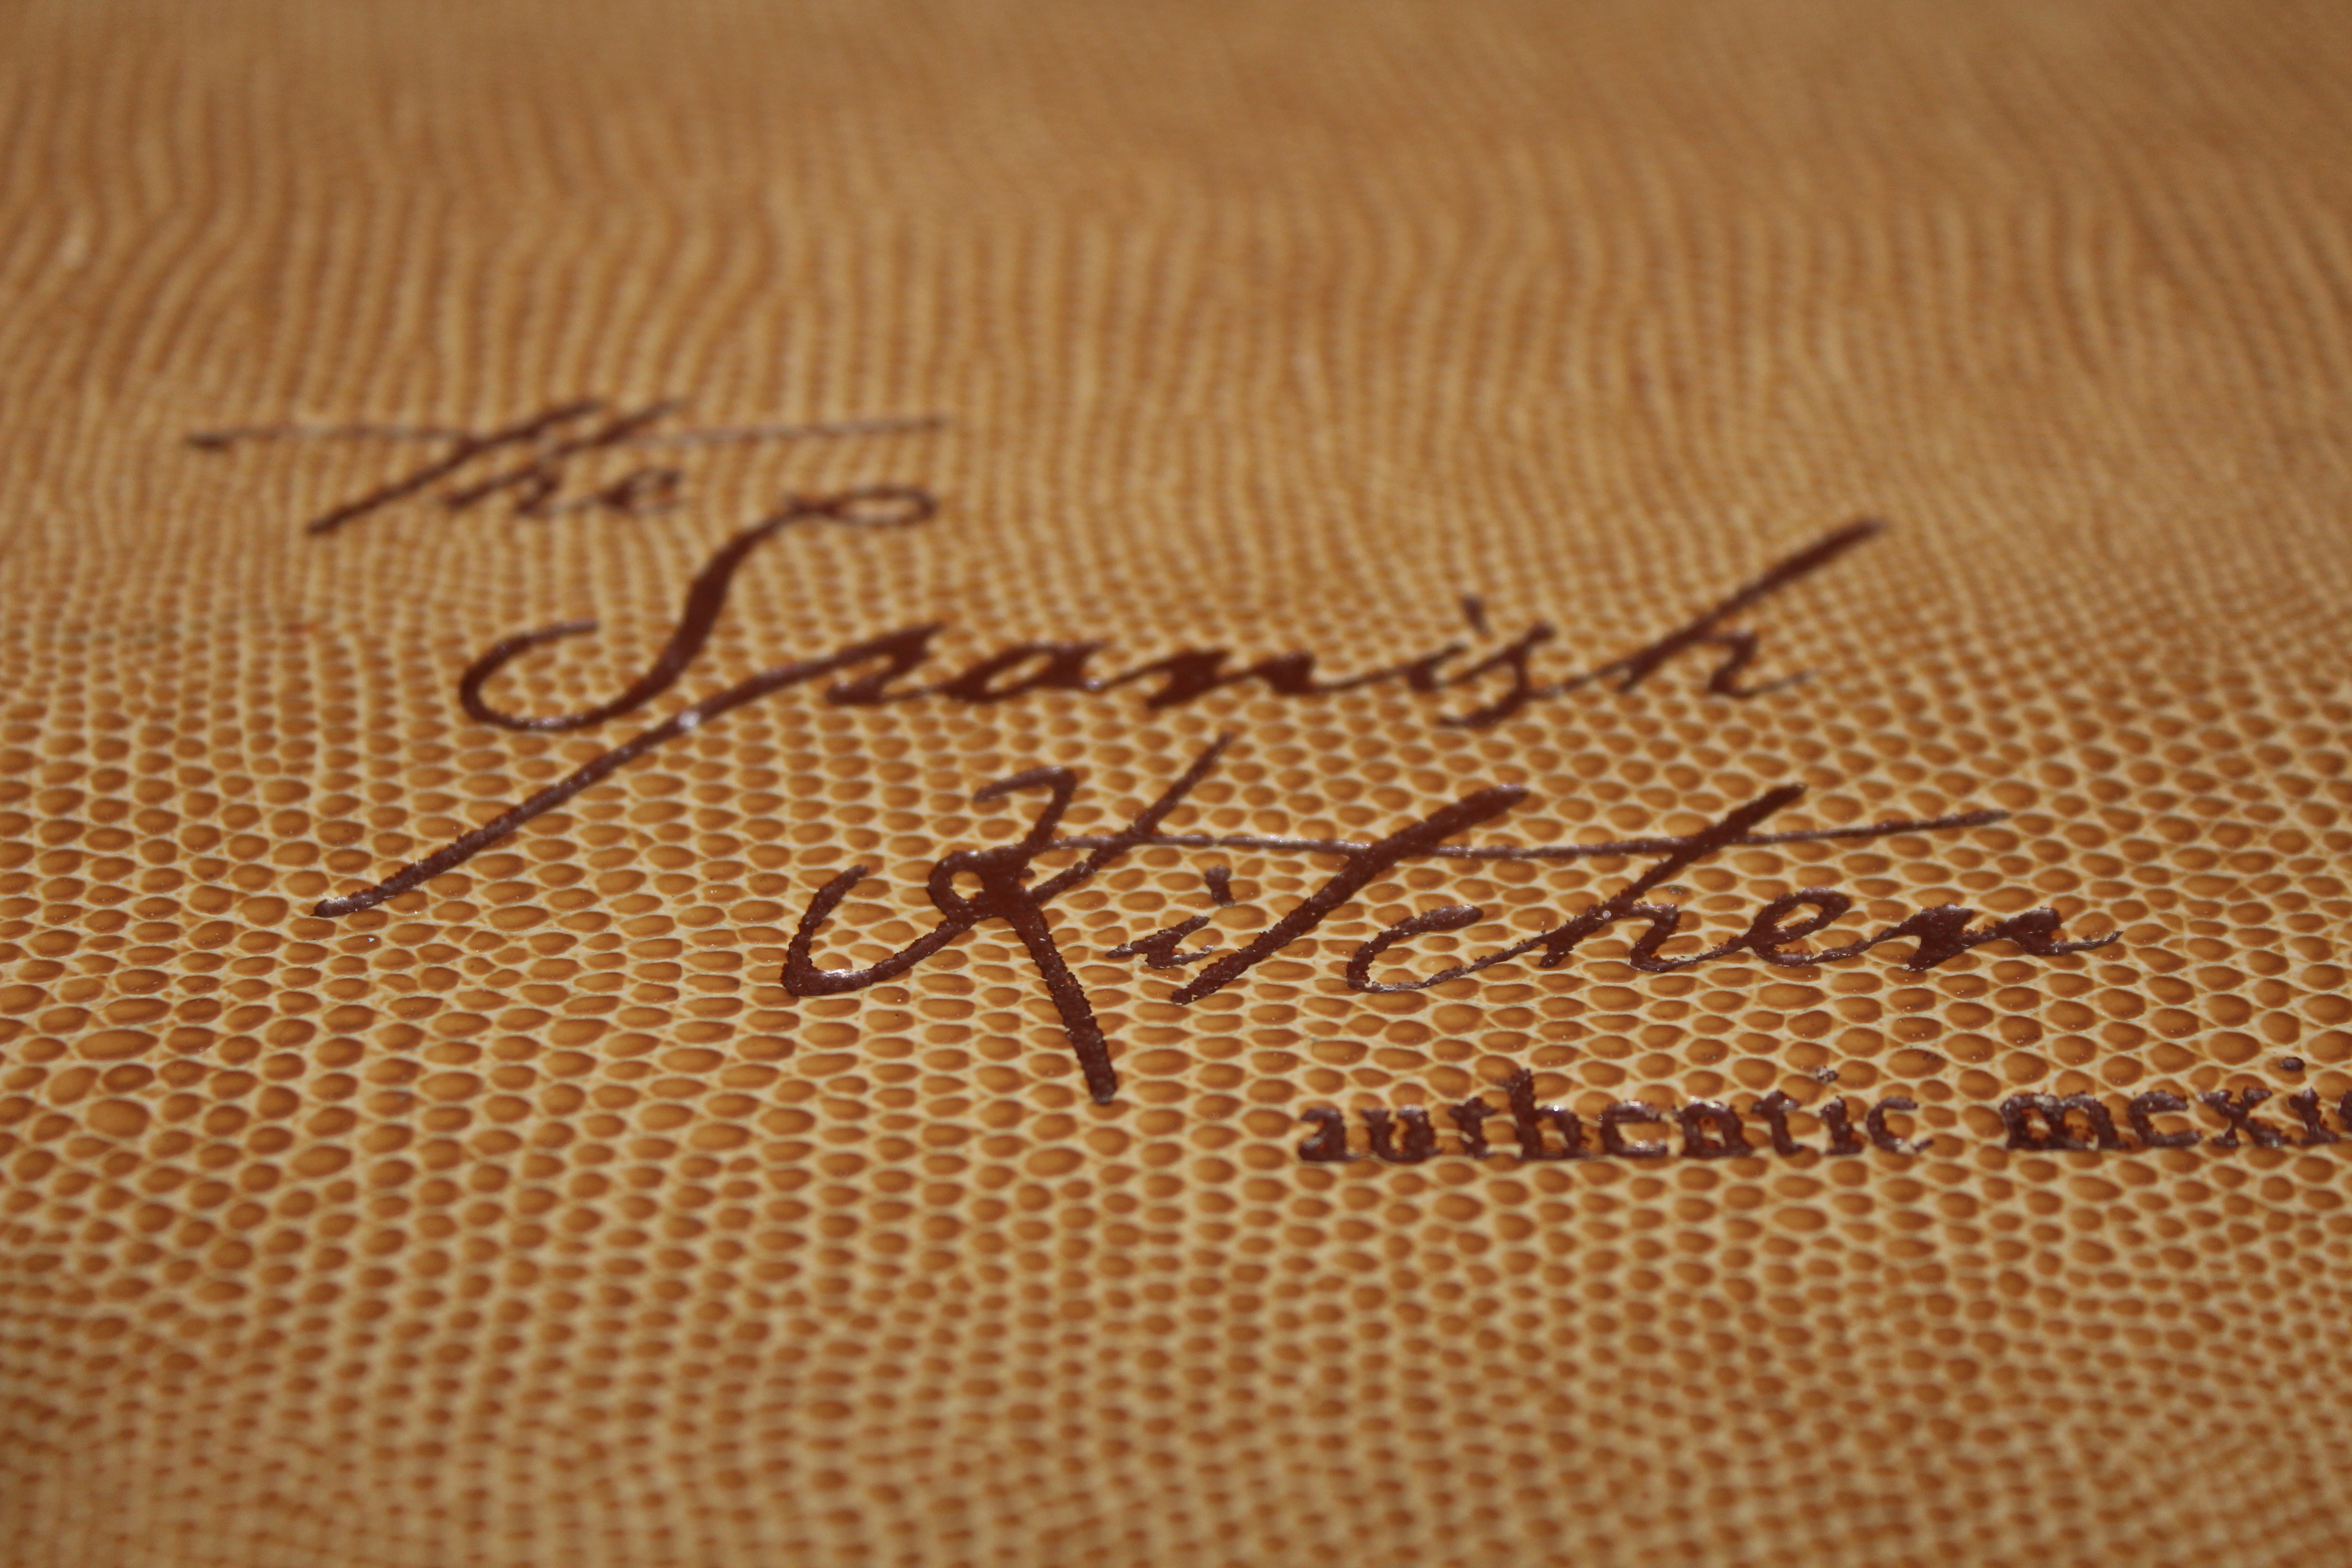 The
Spanish
Kitchen
authentic mexi